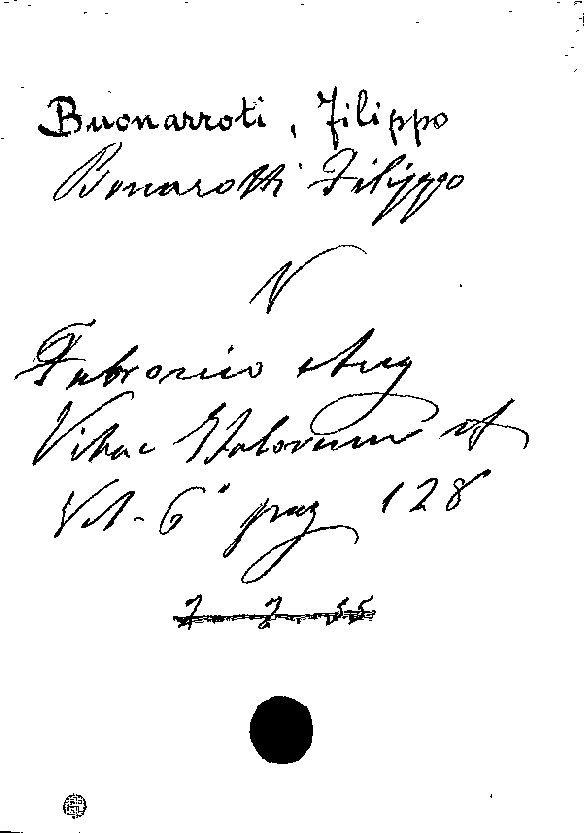 Buonarroti, Filippo
Bonarotti Filippo
V
Fabronio Ang
Vitae Italorum et
Vol. 6° pag 128
7 2. 55